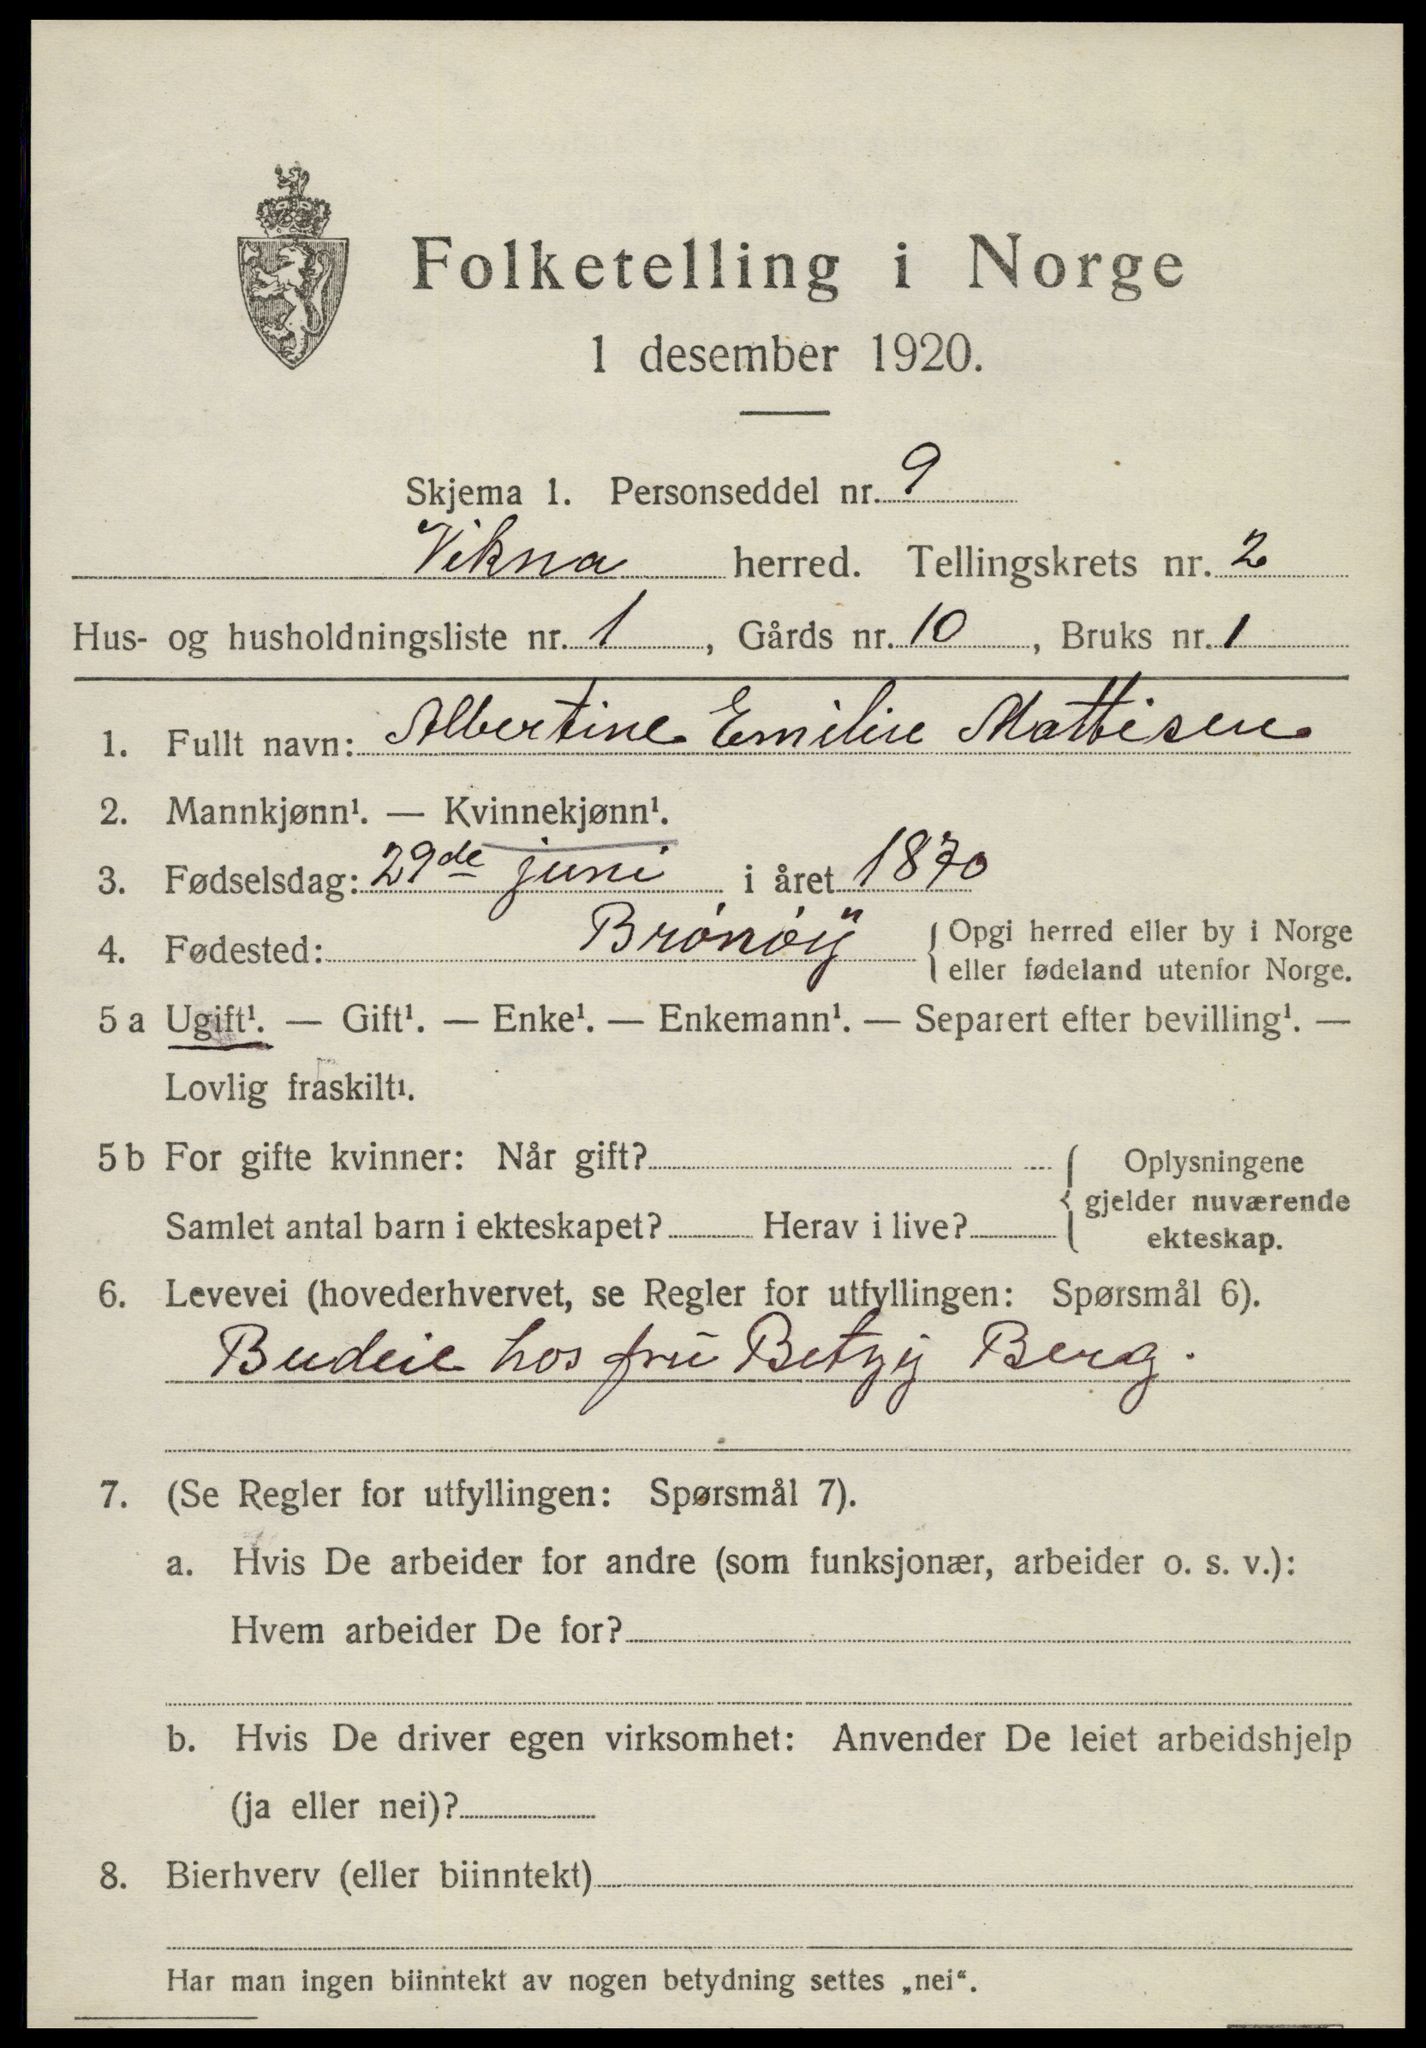 Folketelling i Norge
1 desember 1920.
Skjema 1. Personseddel nr. 9
Vikna herred. Tellingskrets nr. 2
Hus- og husholdningsliste nr. 1, Gårds nr. 10, Bruks nr. 1
1. Fullt navn: Albertine Emilie Mattisen
2. Mannkjønn¹. — Kvinnekjønn¹.
3. Fødselsdag: 29de juni i året 1870
4. Fødested: Brönöÿ { Opgi herred eller by i Norge
eller fødeland utenfor Norge.
5 a Ugift¹. — Gift¹. — Enke¹. — Enkemann¹. — Separert efter bevilling¹. —
Lovlig fraskilt¹.
5 b For gifte kvinner: Når gift? { Oplysningene
gjelder nuværende
Samlet antal barn i ekteskapet? Herav i live?
ekteskap.
6. Levevei (hovederhvervet, se Regler for utfyllingen: Spørsmål 6).
Budeie hos fru Betzy Berg.
7. (Se Regler for utfyllingen: Spørsmål 7).
a. Hvis De arbeider for andre (som funksjonær, arbeider o. s. v.):
Hvem arbeider De for?
b. Hvis De driver egen virksomhet: Anvender De leiet arbeidshjelp
(ja eller nei)?
8. Bierhverv (eller biinntekt)
Har man ingen biinntekt av nogen betydning settes „nei“.